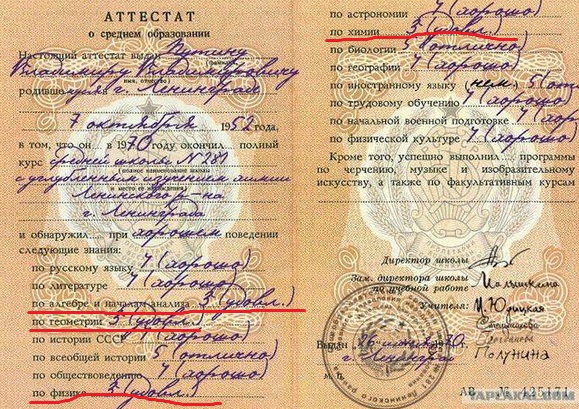 АТТЕСТАТ
о среднем образовании
Настоящий аттестат выдан Путину
Владимиру Владимировичу
(имя, отчество)
родившемуся в г. Ленинград
7 октября 1952 года,
в том, что он в 1970 окончил полный
курс средней школы № 281
(полное наименование школы
с углубленным изучением химии
и место её нахождения)
Ленинского р-на
г. Ленинграда
и обнаружил при хорошем поведении
следующие знания:
по русскому языку 4 (хорошо)
по литературе 4 (хорошо)
по алгебре и началам анализа 3 (удовл.)
по геометрии 3 (удовл.)
по истории СССР 4 (хорошо)
по всеобщей истории 5 (отлично)
по обществоведению 4 (хорошо)
по физике 3 (удовл.)
по астрономии 4 (хорошо)
по химии 3 (удовл.)
по биологии 5 (отлично)
по географии 4 (хорошо)
по иностранному языку (нем.) 5 (отл
по трудовому обучению 4 (хорошо)
по начальной военной подготовке 4 (хорошо)
по физической культуре 4 (хорошо)
Кроме того, успешно выполнил программы
по черчению, музыке и изобразительному
искусству, а также по факультативным курсам
Директор школы
Зам. директора школы
по учебной работе
Учителя: И. Юрицкая
Богданова
Полунина
Выдан 26 июня 1970 г.
г. Ленинград
М. П.
АВ № 125171
YAPLAKAL.COM